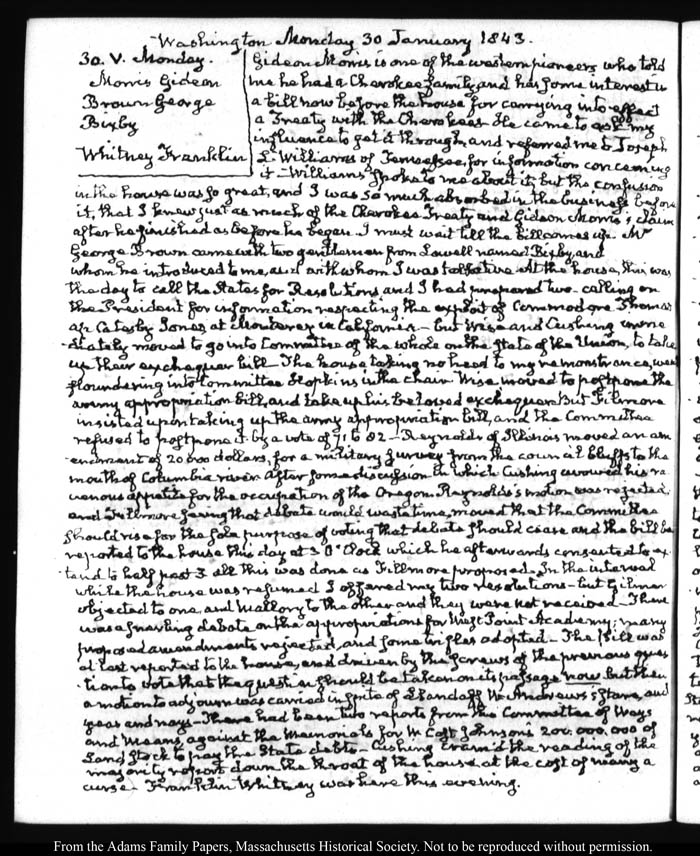 Washington Monday 30 January 1843.
30. V. Monday.
Morris Gideon
Brown George
Bixby
Whitney Franklin
Gideon Morris is one of the western pioneers who told
me he had a Cherokee family and has some interest in
a bill now before the house for carrying into effect
a Treaty with the Cherokees. He came to ask my
influence to get it through, and referred me to Joseph
L. Williams of Tennessee, for information concerning
it – Williams spoke to me about it, but the confusion
in the house was so great, and I was so much absorbed in the business before
it, that I knew just as much of the Cherokee Treaty and Gideon Morris's claim
after he finished as before he began. I must wait till the bill comes up. Mr
George Brown came with two gentlemen from Lowell named Bixby and
whom he introduced to me, and with whom I was talkative. At the house, this was
the day to call the States for Resolutions and I had prepared two – calling on
the President for information respecting the exploit of Commodore Thomas
ap Catesby Jones at Monterey in California – but Wise and Cushing immediately
moved to go into Committee of the whole on the State of the Union, to take
up their exchequer bill – The house taking no heed to my remonstrance, went
floundering into Committee Hopkins in the chair Wise moved to postpone the
army appropriation bill, and take up his beloved exchequer. But Fillmore
insisted upon taking up the army appropriation bill, and the Committee
refused to postpone it by a vote of 91 to 82 – Reynolds of Illinois moved an am
endment of 20000 dollars, for a military survey from the council Bluffs to the
mouth of Columbia river after some discussion in which Cushing avowed his ra
venous appetite for the occupation of the Oregon Reynolds's motion was rejected,
and Fillmore fearing that debate would waste time, moved that the Committee
should rise for the sole purpose of voting that debate should cease and the bill be
reported to the house this day at 3 O'Clock which he afterwards consented to ex
tend to half past 3 all this was done as Fillmore proposed – In the interval
while the house was resumed I offered my two resolutions – but Gilmer
objected to one, and Mallory to the other and they were not received – There
was a snarling debate on the appropriations for West Point Academy; many
proposed amendments rejected, and some trifles adopted – The bill was
at last reported to the house, and driven by the screws of the previous ques
tion to vote that the question should be taken on its passage now but then
a motion to adjourn was carried in spite of Landaff W. Andrews's stare, and
yeas and nays – There had been two reports from the Committee of Ways
and Means, against the Memorials for W. Cost Johnson's 200.000.000 of
Land Stock to pay the State debts – Cushing cramm'd the reading of the
majority report down the throat of the house, at the cost of many a
curse – Franklin Whitney was here this evening.
From the Adams Family Papers, Massachusetts Historical Society. Not to be reproduced without permission.